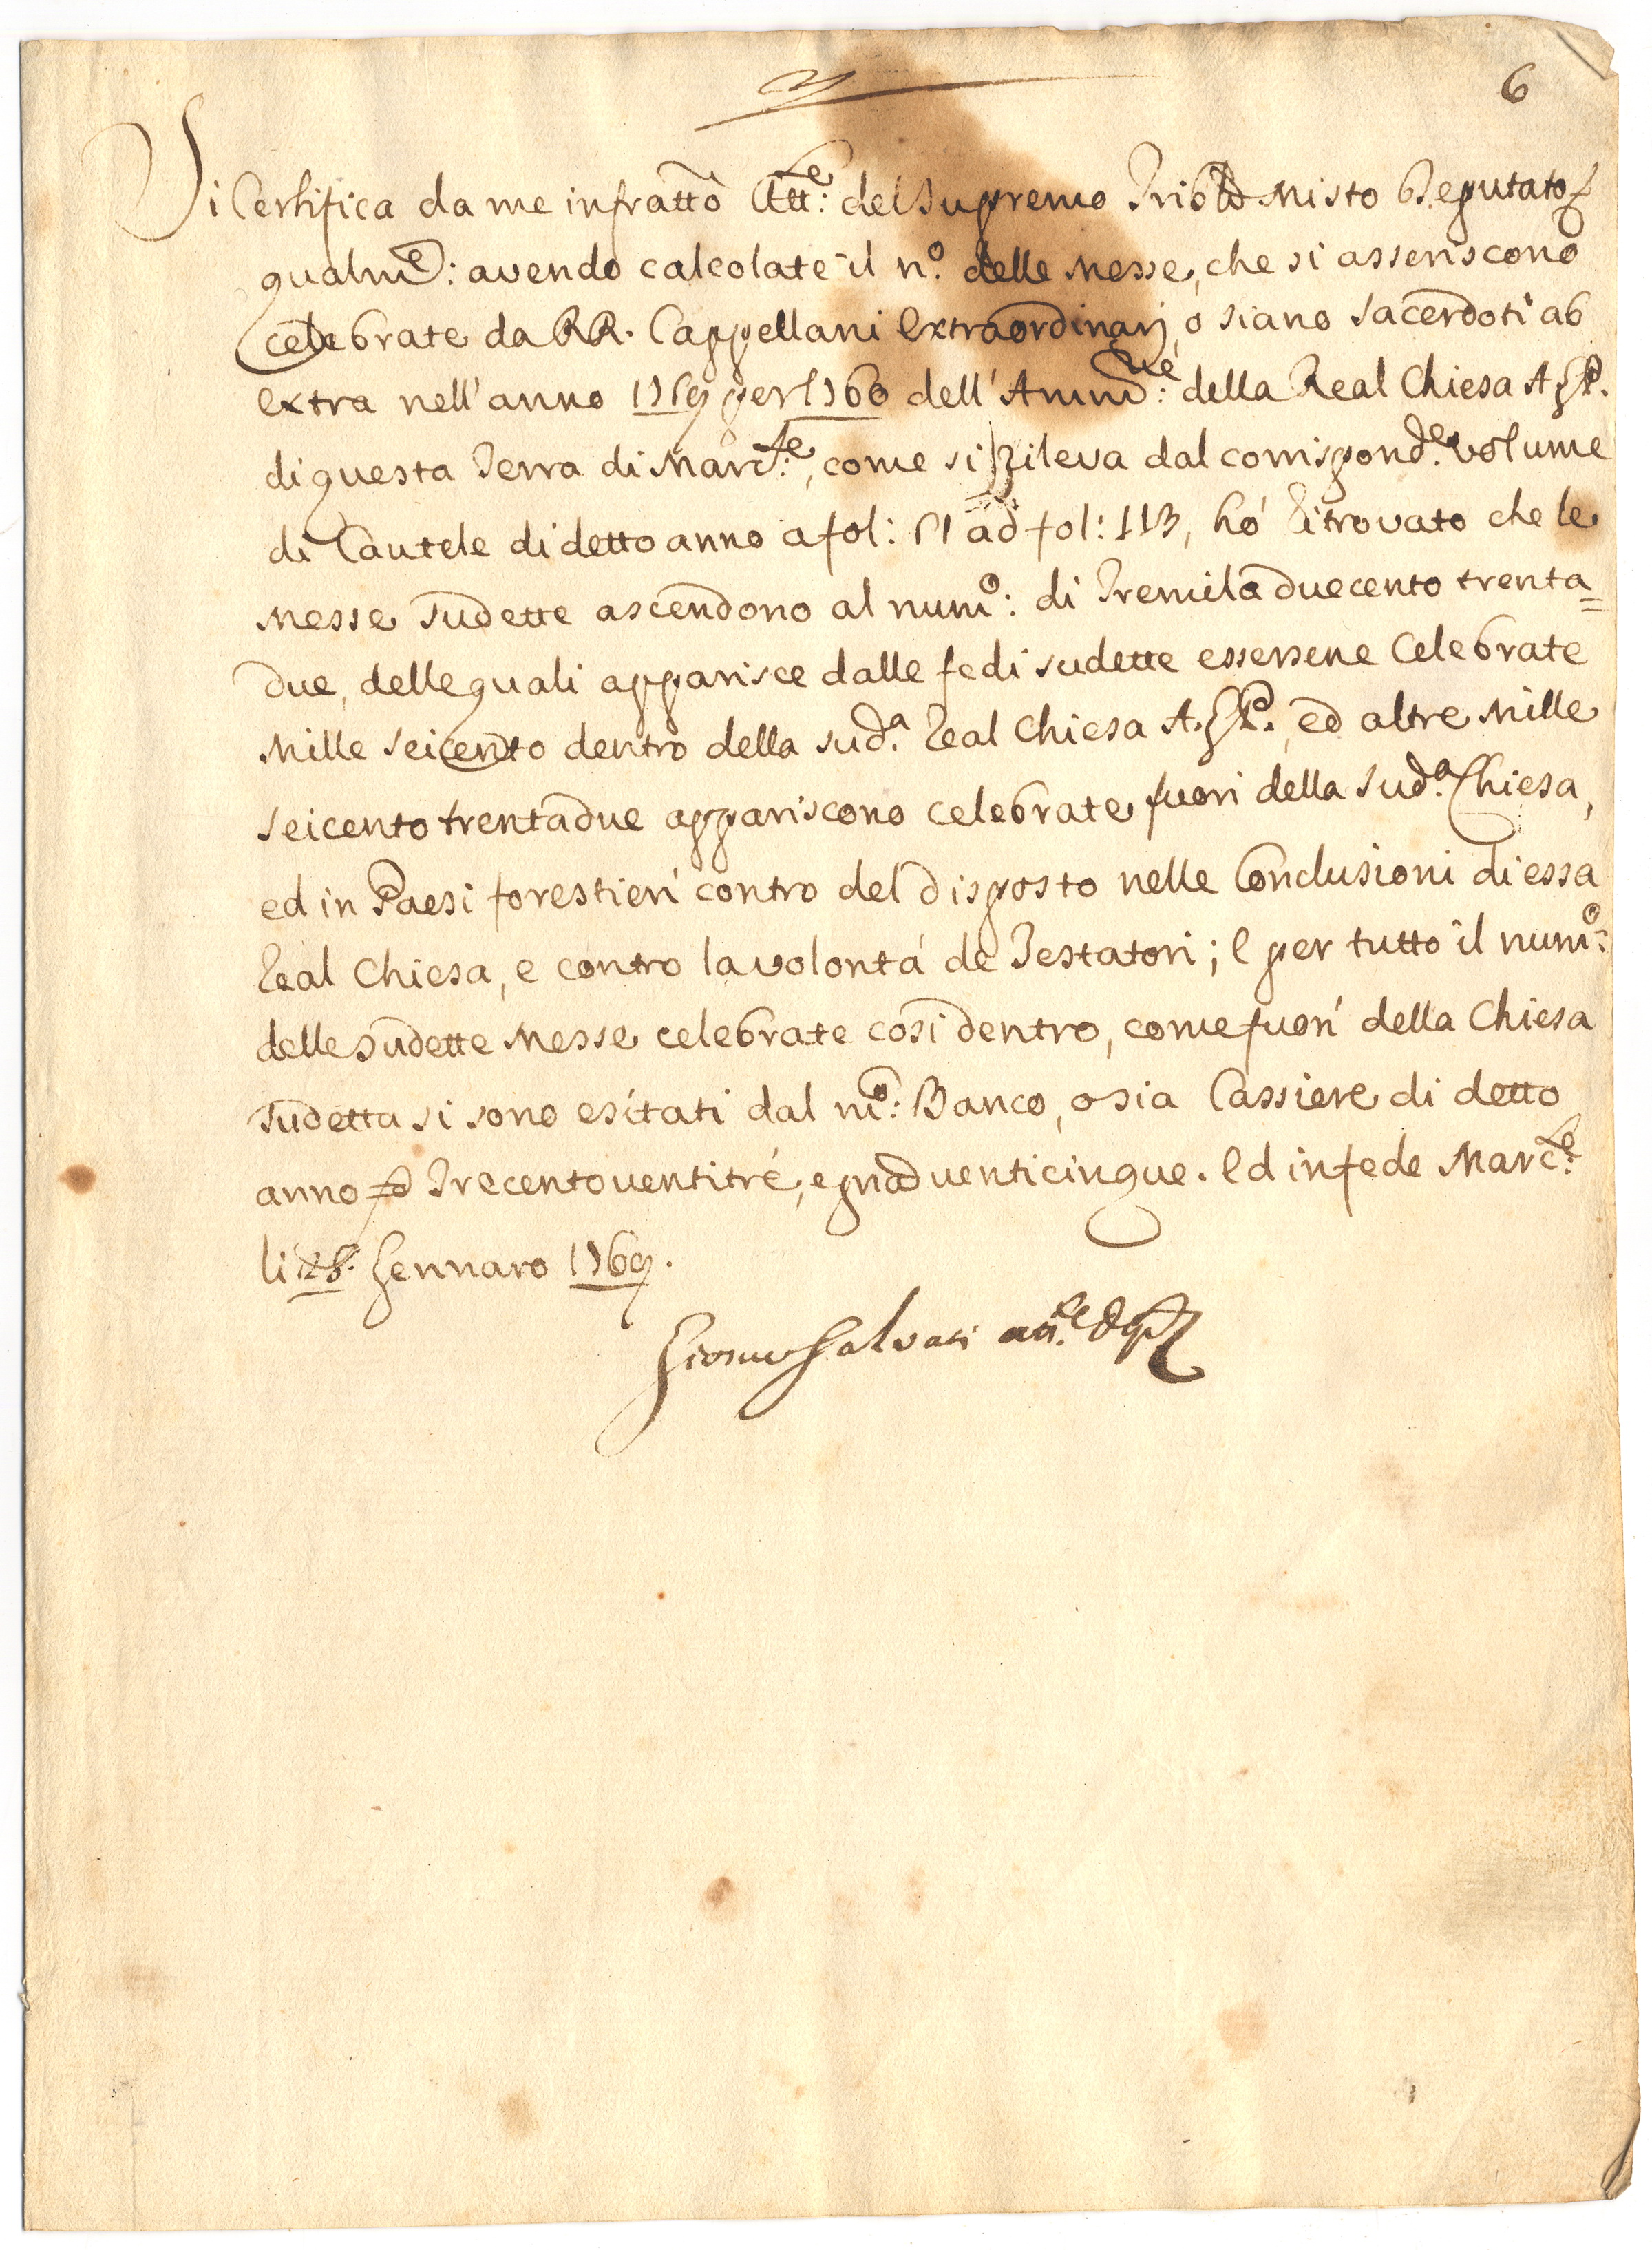 6
Si Certifica da me infratto Att:e del Supremo Trib.le Misto Deputato
qualm.e: avendo calcolate il n.o delle Messe, che si asseriscono
celebrate da RR. Cappellani Extraordinarj, o siano Sacerdoti ab
extra nell'anno dell' Amm:ne della Real Chiesa A.G.P.
di questa Terra di Marc:se, come si rileva dal corrispond.e volume
di Cautele di detto anno a fol: 51 ad fol: 113, hó ritrovato che le
Messe Sudette ascendono al num:o di Tremiladuecento trenta=
due, delle quali apparisce dalle fedi sudette essersene Celebrate
Mille Seicento dentro della sud.a Real Chiesa A.G.P., ed altre Mille
Seicento trentadue appariscono celebrate fuori della Sud.a Chiesa,
ed in Paesi forestieri contro del disposto nelle Conclusioni di essa
Real Chiesa, e contro la volontá de Testatori; E per tutto il num:o
delle Sudette Messe celebrate cosi dentro, come fuori della Chiesa
Sudetta si sono esitati dal m:o Banco, o sia Cassiere di detto
anno Trecentoventitré, e gna venticinque. Ed in fede Marc:se
li Gennaro 1769.
Salvati att.e